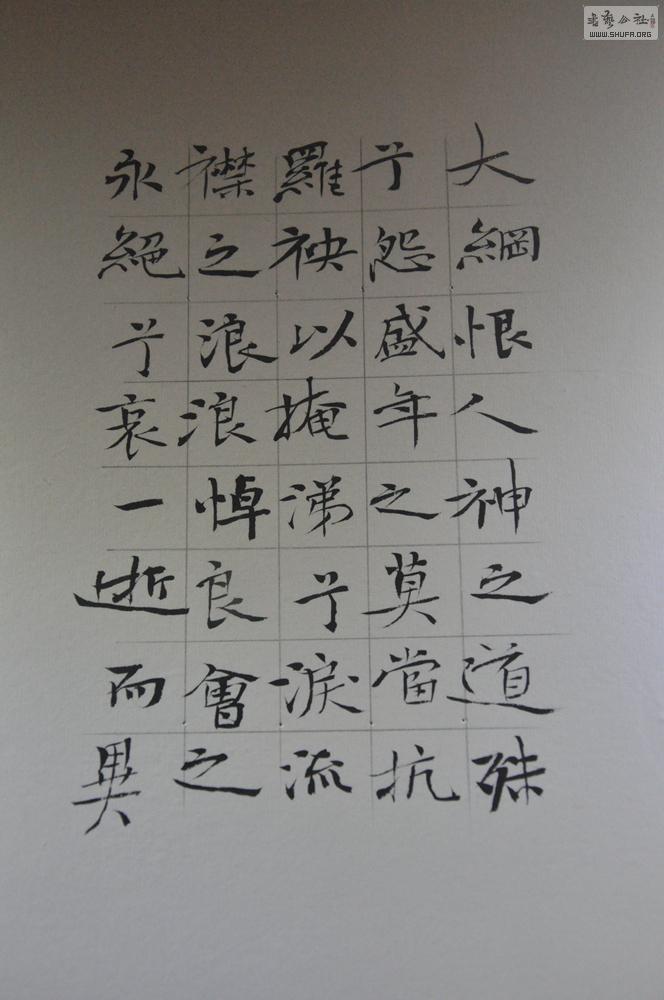 大綱恨人神之道殊
兮怨盛年之莫當抗
羅袂以掩涕兮淚流
襟之浪浪悼良會之
永絕兮哀一逝而異
書藝公社
WWW.SHUFA.ORG